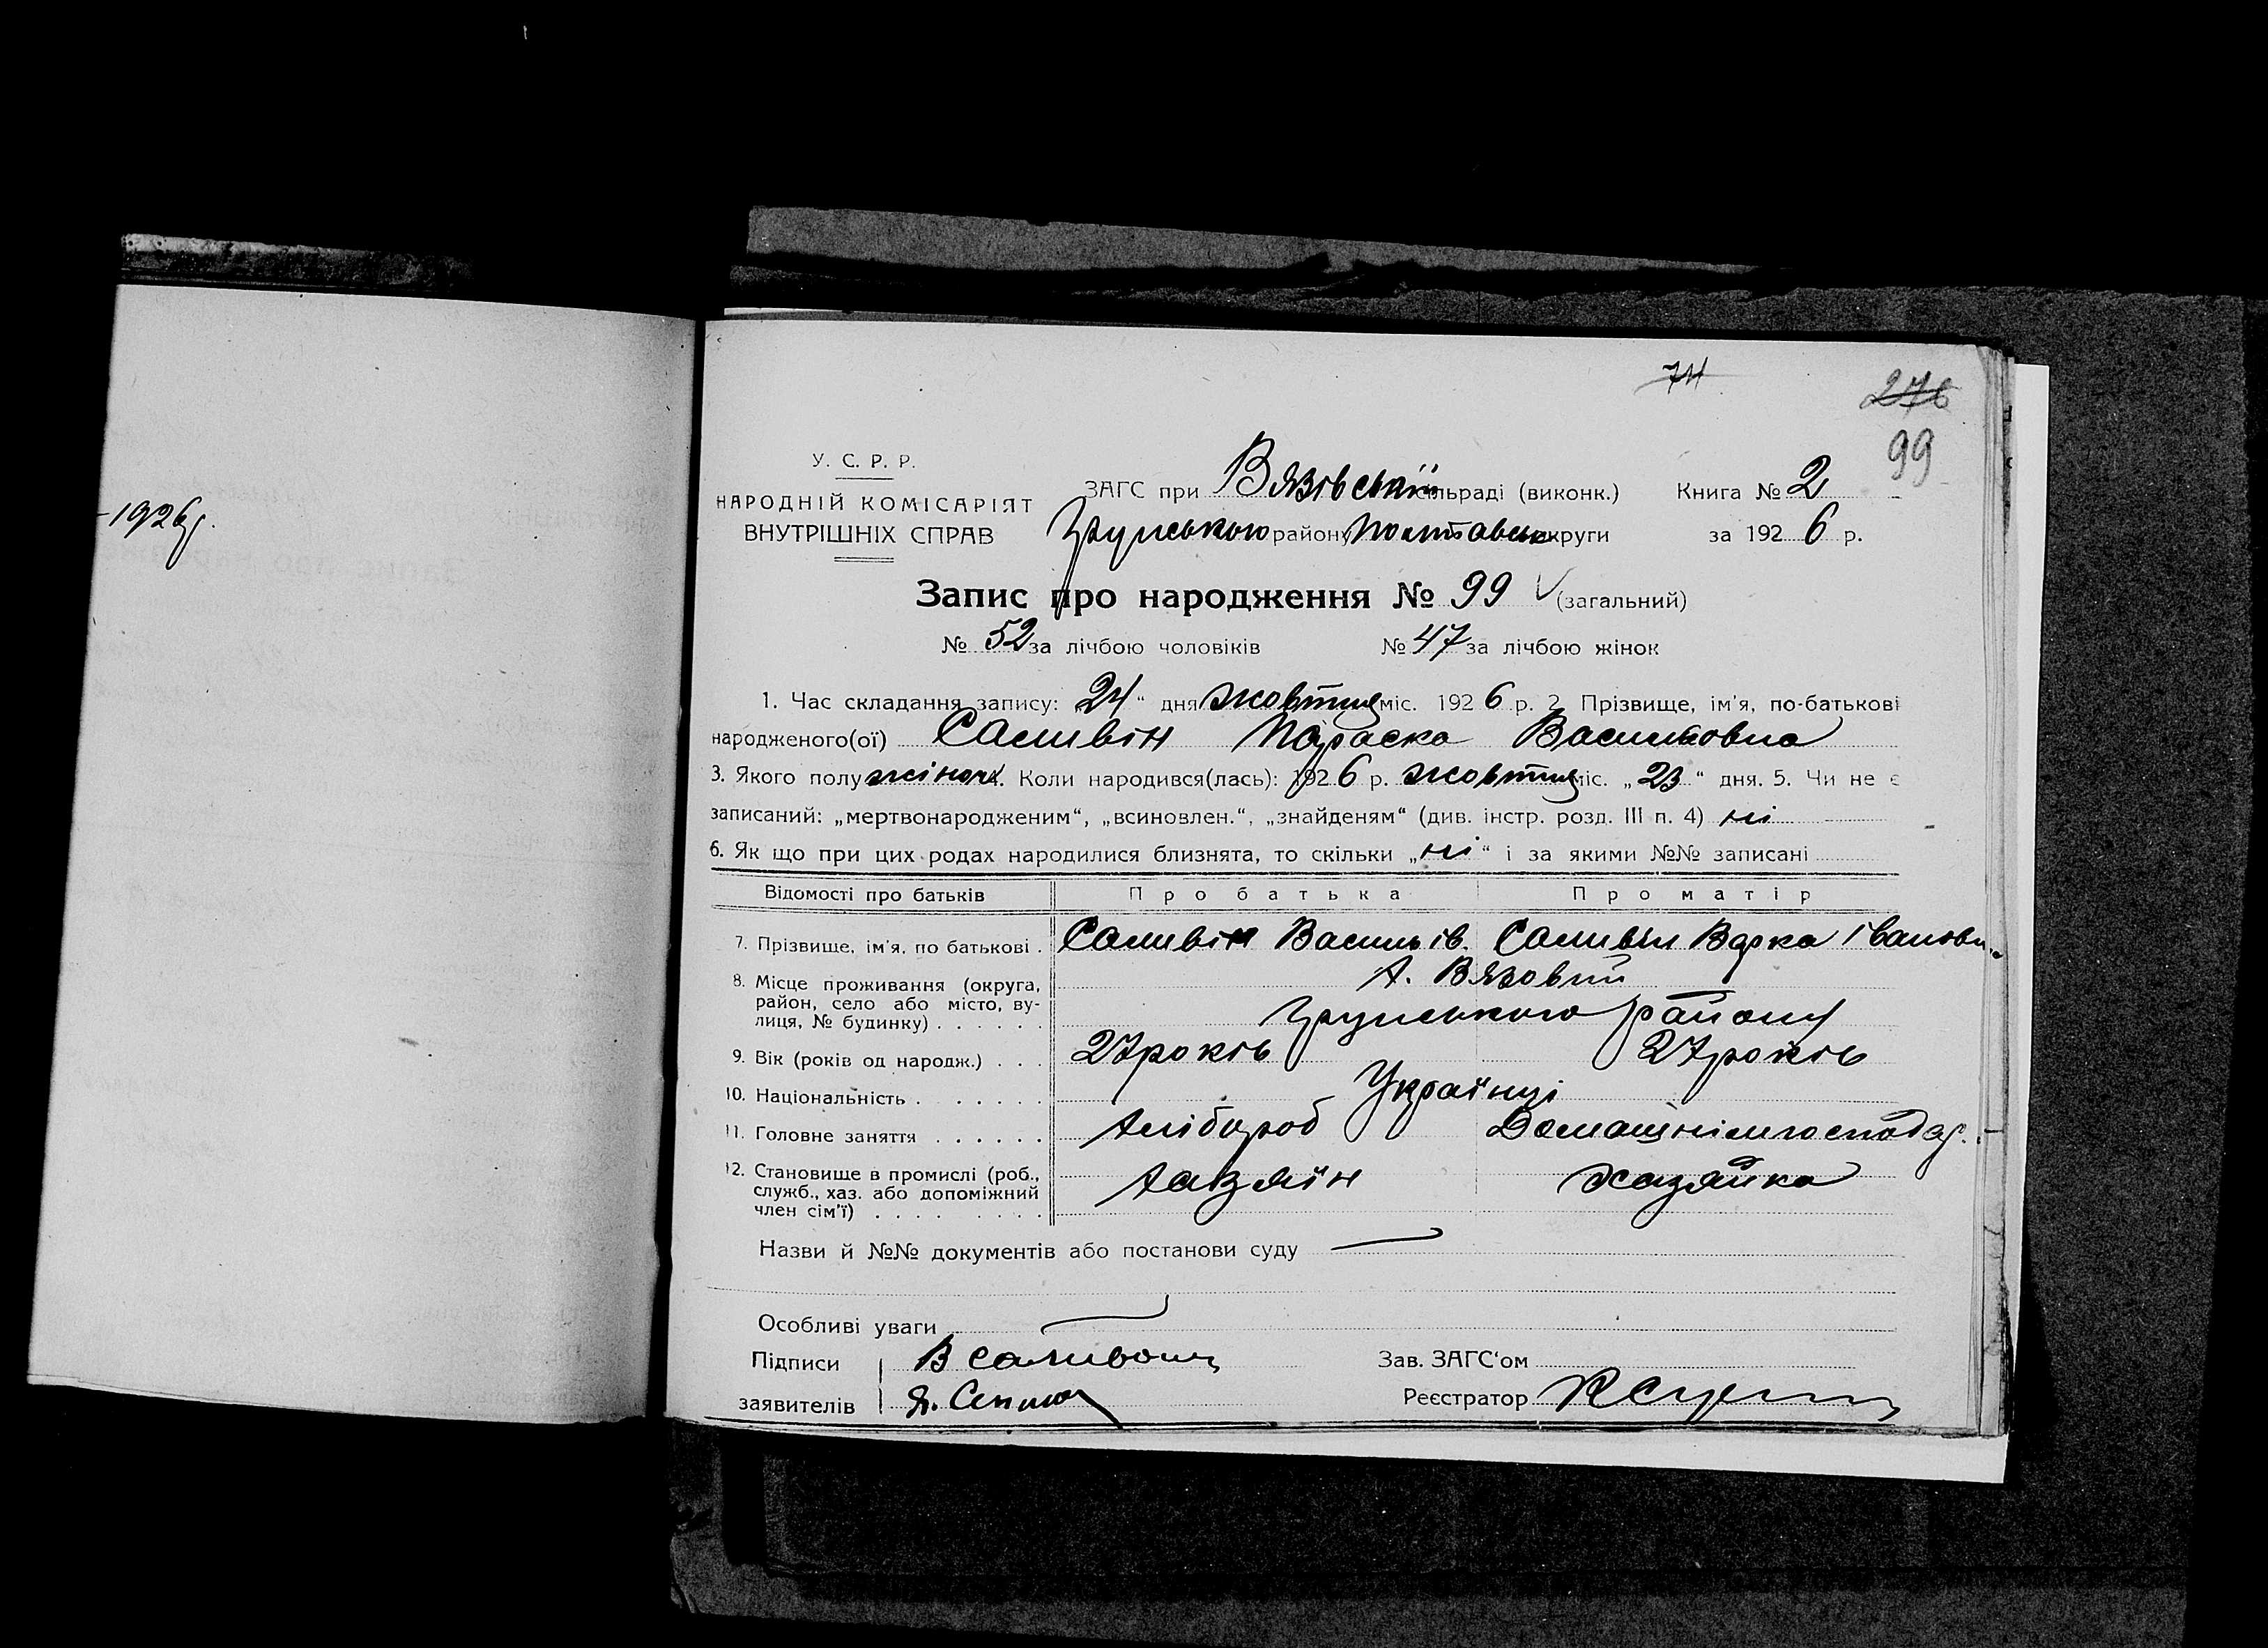 74
276
99
-1926р.
У. С. Р. Р.
НАРОДНІЙ КОМІСАРІЯТ
ВНУТРІШНІХ СПРАВ
ЗАГС при Вязівській сільраді (виконк.) Книга № 2
Грунського району Полтавськ округи за 1926 р.
Запис про народження № 99 (загальний)
№ 52 за лічбою чоловіків № 47 за лічбою жінок
1. Час складання запису: „24“ дня жовтня міс. 1926 р. 2. Прізвище, ім'я, по-батькові
народженого(ої) Саливін Параска Василовна
3. Якого полу жіноч. Коли народився(лась): 1926 р. жовтня міс. „23“ дня. 5. Чи не є
записаний: „мертвонародженим“, „всиновлен.“, „знайденям“ (див. інстр. розд. III п. 4) ні
6. Як що при цих родах народилися близнята, то скільки „ні“ і за якими №№ записані
Відомості про батьків Про батька Про матір
7. Прізвище, ім'я, по батькові . Саливін Василь ів. Саливін Варка Івановна
8. Місце проживання (округа, район, село або місто, ву-
лиця, № будинку) . . . . . . Х. Вязовий
Грунського району
9. Вік (років од народж.) . . . 27 років 27 років
10. Національність . . . . . . . Українці
11. Головне заняття . . . . . . Хлібороб Домашнім господар.
12. Становище в промислі (роб.,
служб., хаз. або допоміжний
член сім'ї) . . . . . . . . Хазяїн Хазяйка
Назви й №№ документів або постанови суду
Особливі уваги
Підписи В Саливон Зав. ЗАГС'ом
заявителів Я. Реєстратор